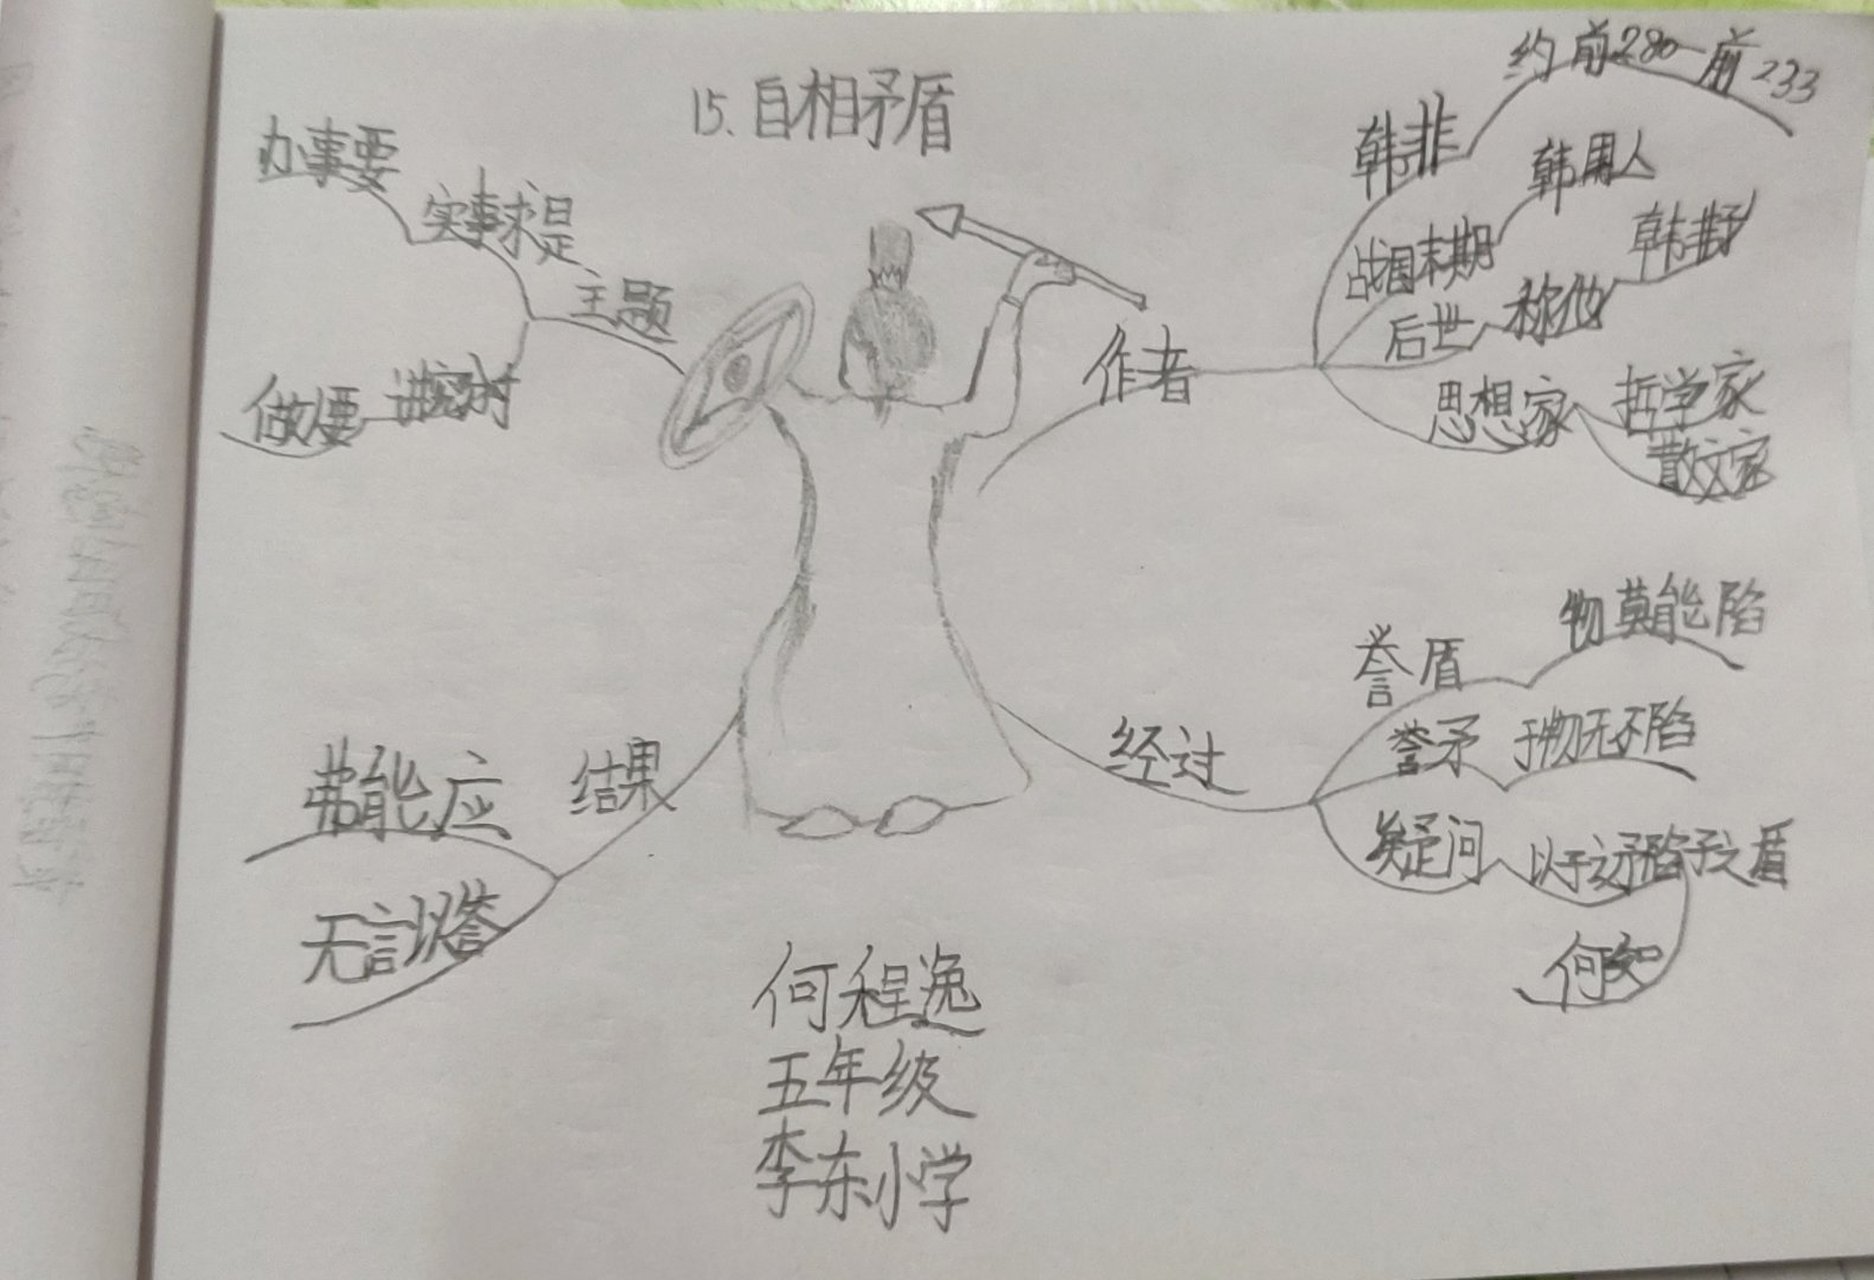 15.自相矛盾
作者
韩非
约前280-前233
战国末期
韩国人
后世
称做
韩非子
思想家
哲学家
散文家
经过
誉盾
物莫能陷
誉矛
于物无不陷
疑问
以子之矛陷子之盾
何如
结果
弗能应
无言以答
主题
实事求是
办事要
讲究
做
要
何程逸
五年级
李东小学